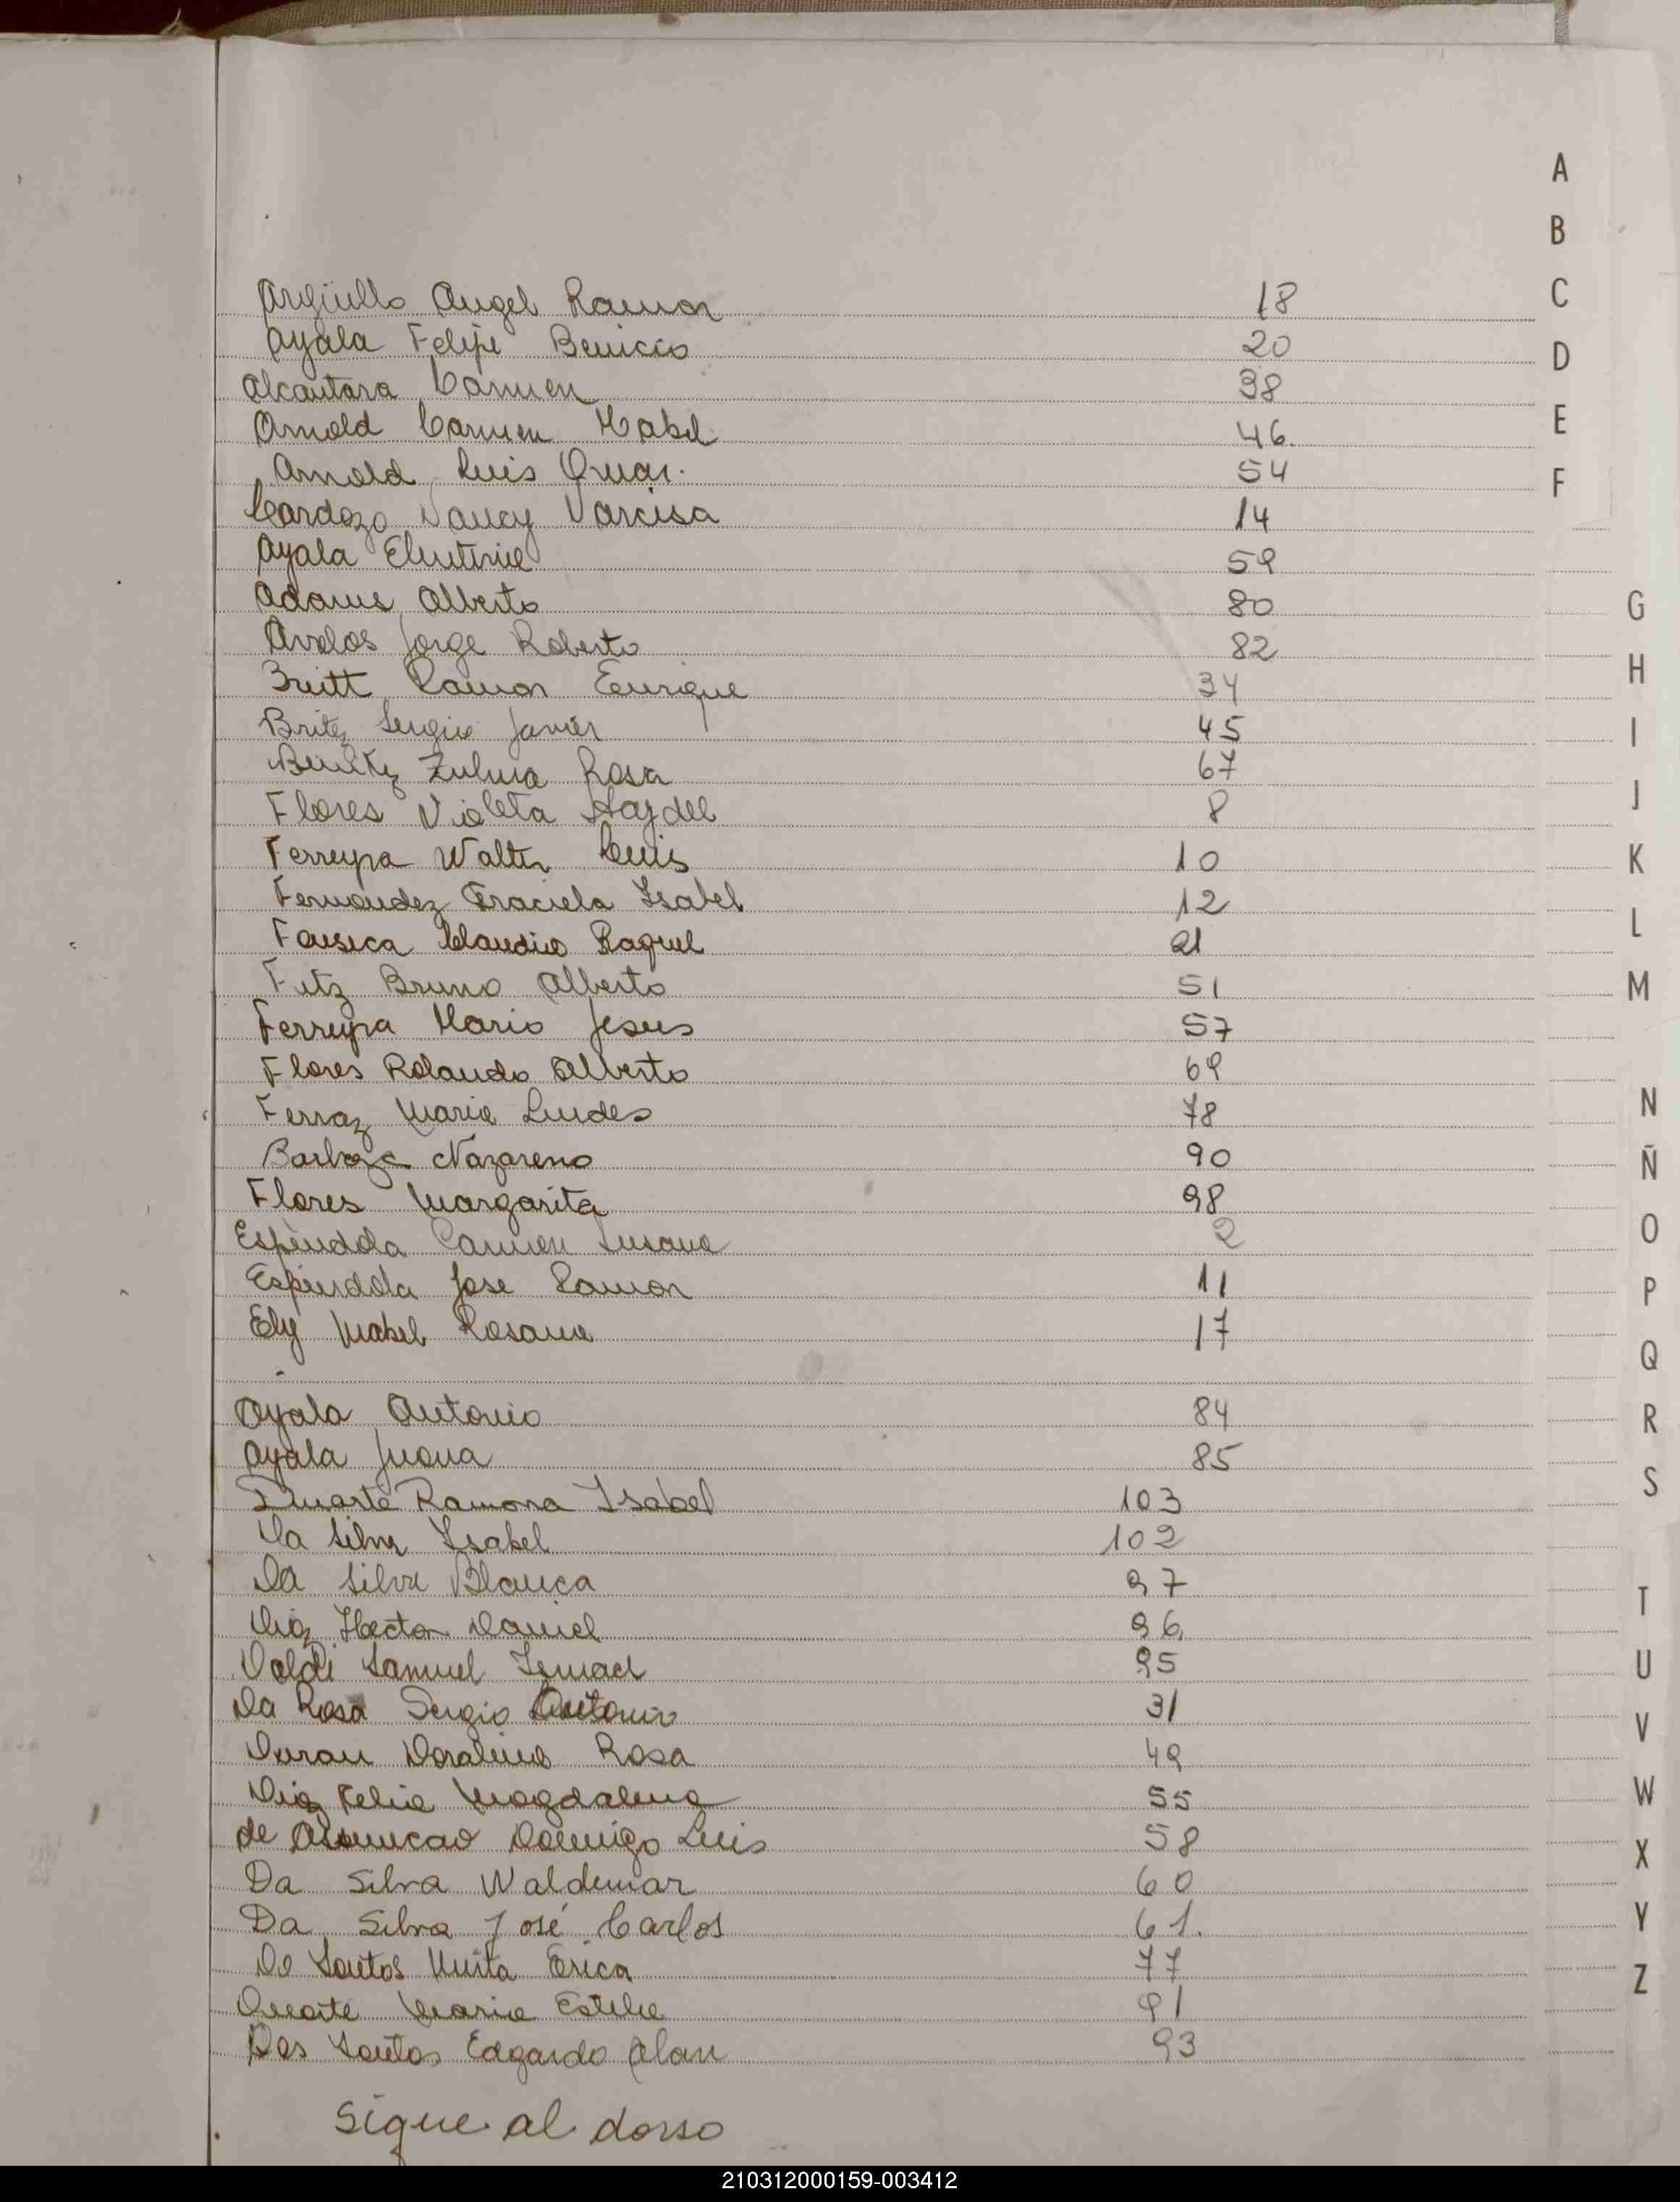 Argüello Angel Ramon 18
Ayala Felipe Benicio 20
Alcantara Carmen 38
Arnold Carmen Mabel 46.
Arnold Luis Omar. 54
Cardozo Nancy Narcisa 14
Ayala Eleuterio 59
Adams Alberto 80
Avalos Jorge Roberto 82
Britt Ramon Enrique 34
Britez Sergio Javier 45
Benitez Zulma Rosa 67
Flores Violeta Haydee 8
Ferreyra Walter Luis 10
Fernandez Graciela Isabel 12
Fonseca Claudio Raquel 21
Fritz Bruno Alberto 51
Ferreyra Mario Jesus 57
Flores Rolando Alberto 69
Ferraz Maria Lurdes 78
Barboza Nazareno 90
Flores Margarita 98
Espindola Carmen Susana 2
Espindola Jose Ramon 11
Ely Mabel Rosana 17
Ayala Antonio 84
Ayala Juana 85
Duarte Ramona Isabel 103
Da Silva Isabel 102
Da Silva Blanca 97
Diaz Hector Daniel 96
Samuel Ismael 95
Da Rosa Sergio Antonio 31
Duran Doralino Rosa 49
Diaz Felia Magdalena 55
de Asuncao Domingo Luis 58
Da Silva Waldemar 60
Da Silva José Carlos 61.
Do Santos Mirta Erica 77
Duarte Maria Estela 91
Dos Santos Edgardo Alan 93
Sigue al dorso
A
B
C
D
E
F
G
H
I
J
K
L
M
N
Ñ
O
P
Q
R
S
T
U
V
W
X
Y
Z
210312000159-003412